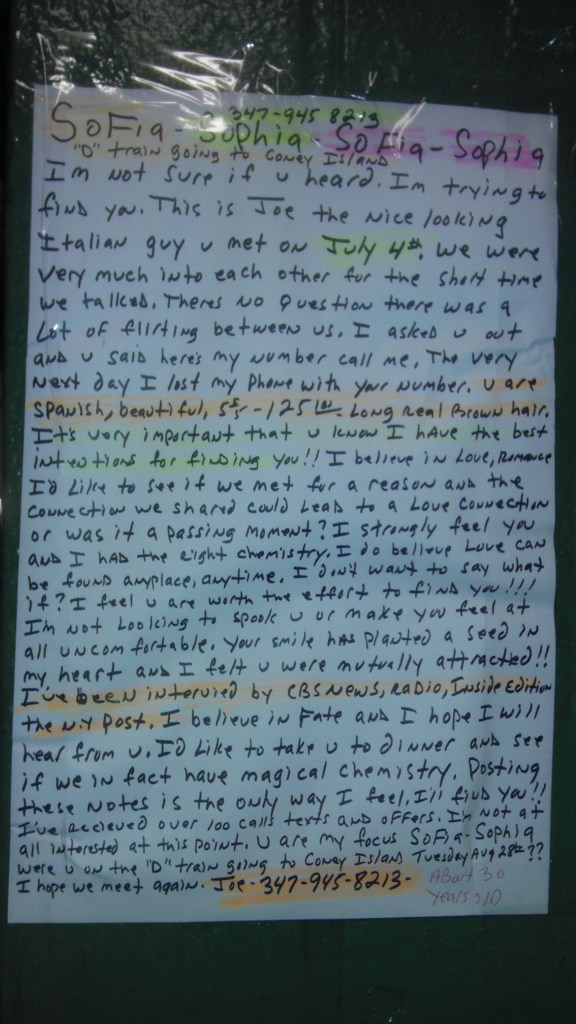 347-945 8213
SoFia - Sophia - SoFia - Sophia
"D" train going to Coney Island
I'm not sure if u heard. I'm trying to
find you. This is Joe the nice looking
Italian guy u met on July 4th. we were
very much into each other for the short time
we talked. Theres no question there was a
lot of flirting between us. I asked u out
and u said here's my number call me. The very
next day I lost my phone with your number. u are
Spanish, beautiful, 5'5" - 125 lbs. Long Real Brown hair.
It's very important that u know I have the best
intentions for finding you!! I believe in Love, Romance
I'd like to see if we met for a reason and the
connection we shared could lead to a Love connection
or was it a passing moment? I strongly feel you
and I had the right chemistry. I do believe Love can
be found anyplace, anytime. I don't want to say what
if? I feel u are worth the effort to find you!!!
I'm not looking to spook u or make you feel at
all uncomfortable. your smile has planted a seed in
my heart and I felt u were mutually attracted!!
I've been intervied by CBS News, Radio, Inside Edition
the N.Y Post. I believe in Fate and I hope I will
hear from u. I'd like to take u to dinner and see
if we in fact have magical chemistry. Posting
these notes is the only way I feel, I'll find you!!
I've recieved over 100 calls texts and offers. I'm not at
all interested at this point. u are my focus SoFia-Sophia
were u on the "D" train going to Coney Island Tuesday Aug 28th??
I hope we meet again. Joe-347-945-8213-
About 30
years old